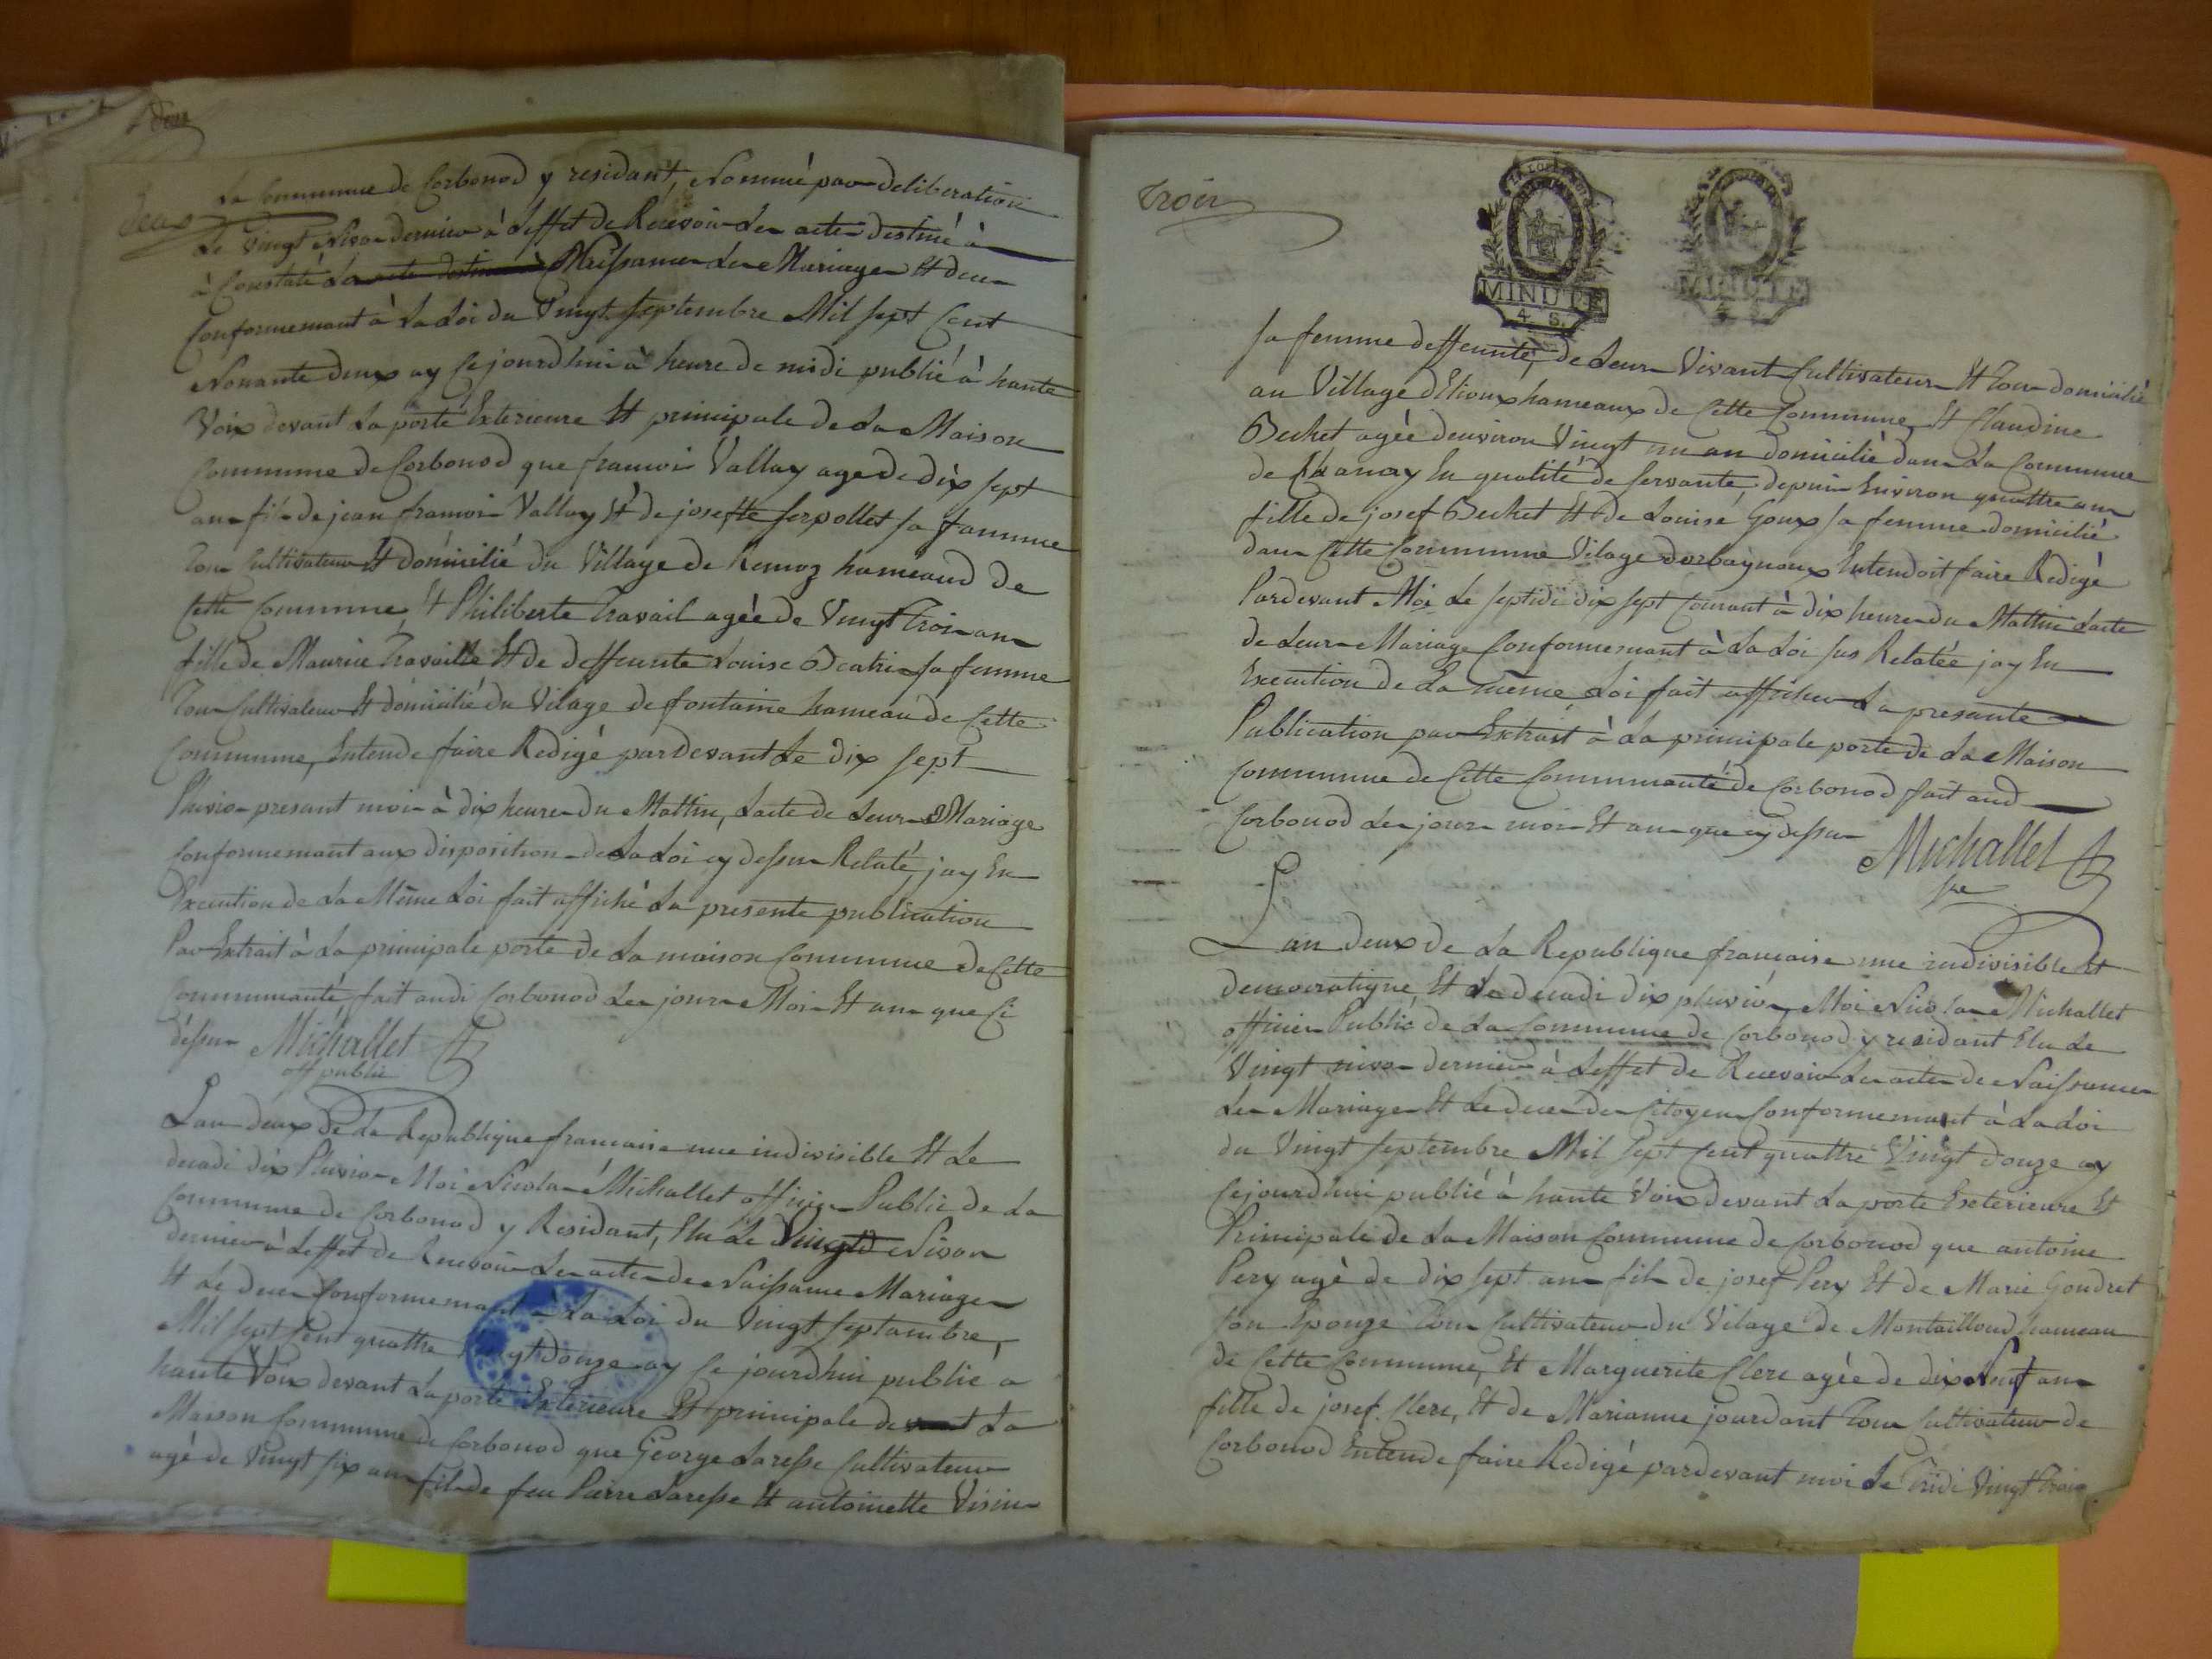 deux
La Commune de Corbonod y residant, Nommé par deliberation
Le Vingt Nivos dernier à Leffet de Recevoir Les actes destiné à
à Constaté La acte destinée à Naissance Les Mariages Et deces
Conformemant à La Loi du Vingt Septembre Mil Sept Cent
Nonante deux ay Cejourdhui à heure de midi publié à haute
Voix devant La porte Exterieure Et principale de La Maison
Commune de Corbonod que francois Vallay age de dix sept
ans fils de jean francois Vallay Et de josefte Serpollet sa fammme
Tous Cultivateurs Et domicilié du Village de Remoz hameaud de
Cette Commune, Et Philiberte Travail agée de Vingt Trois ans
fille de Maurice Travaille Et de deffeunte Louise Beatrix sa femme
Tous Cultivateurs Et domicilié du Vilage de fontaine hameau de Cette
Commune, Entende faire Redigé pardevant Le Dix Sept
Pluvios presant mois à dix heures du Mattin, Lacte de Leurs Mariage
Conformemant aux disposition de La Loi cy dessus Relaté, jay En
Execution de La Même Loi fait affiché La presente publication
Par Extrait à La principale porte de La maison Commune de Cette
Communauté fait audi Corbonod Les jours Mois Et ans que Ci
dessus Michallet
off public
Lan deux de La Republique francaise une indivisible Et Le
decadi dix Pluvios Moi Nicolas Michallet officier Public de La
Commune de Corbonod y Residant, Elu Le Vingtd Nivos
dernier à Leffet de Recevoir Les actes de Naissance Mariages
Et Le deces Conformemant à La Loi du Vingt Septambre,
Mil Sept Cent quattre Vingt douze ay Ce jourdhui publié à
haute Voix devant La porte Exterieure Et principale devant La
Maison Commune de Corbonod que George Laresse Cultivateur
agé de Vingt six ans fils de feu Pierre Laresse Et antoinette Visin
Trois
LA LOI LE ROI
MINUTE
4. S.
MINUTE
sa femme deffeunte, de Leurs Vivant Cultivateurs Et Tous domicilié
au Village dEtioux hameaux de Cette Commune, Et Claudine
Bechet agée denviron Vingt un an domicilié dans La Commune
de Chanay En qualité de servante, depuis Environ quattre ans
fille de josef Bechet Et de Louise Goux sa femme domicilié
dans Cette Commune Vilage dorbagnoux Entendoit faire Redigé
Pardevant Moi Le Septidi dix sept Courant à dix heures du Mattin Lacte
de Leurs Mariage Conformemant à La Loi sus Relatée jay En
Execution de La même Loi fait afficher La presante
Publication par Extrait à La principale porte de La Maison
Commune de Cette Communauté de Corbonod fait aud
Corbonod Les jours mois Et ans que cy dessus
Michallet
Lan deux de La Republique francaise une indivisible Et
democratique Et Le decadi dix pluvios, Moi Nicolas Michallet
officier Public de La Commune de Corbonod y residant Elu Le
Vingt nivos dernier à Leffet de Recevoir Les actes de Naissances
Les Mariages Et Le deces des Citoyens Conformemant à La Loi
du Vingt Septembre Mil Sept Cent quattre Vingt douze ay
Cejourdhui publié à haute Voix devant La porte Exterieure Et
Principale de La Maison Commune de Corbonod que antoine
Pery agé de dix sept ans fils de josef Pery Et de Marie Goudret
son Epouze Tous Cultivateurs du Vilage de Montailloud hameau
de Cette Commune, Et Marguerite Clerc agée de dix Neuf ans
fille de josef Clerc, Et de Marianne jourdant Tous Cultivateurs de
Corbonod Entende faire Redigé pardevant moi Le Tridi Vingt Trois